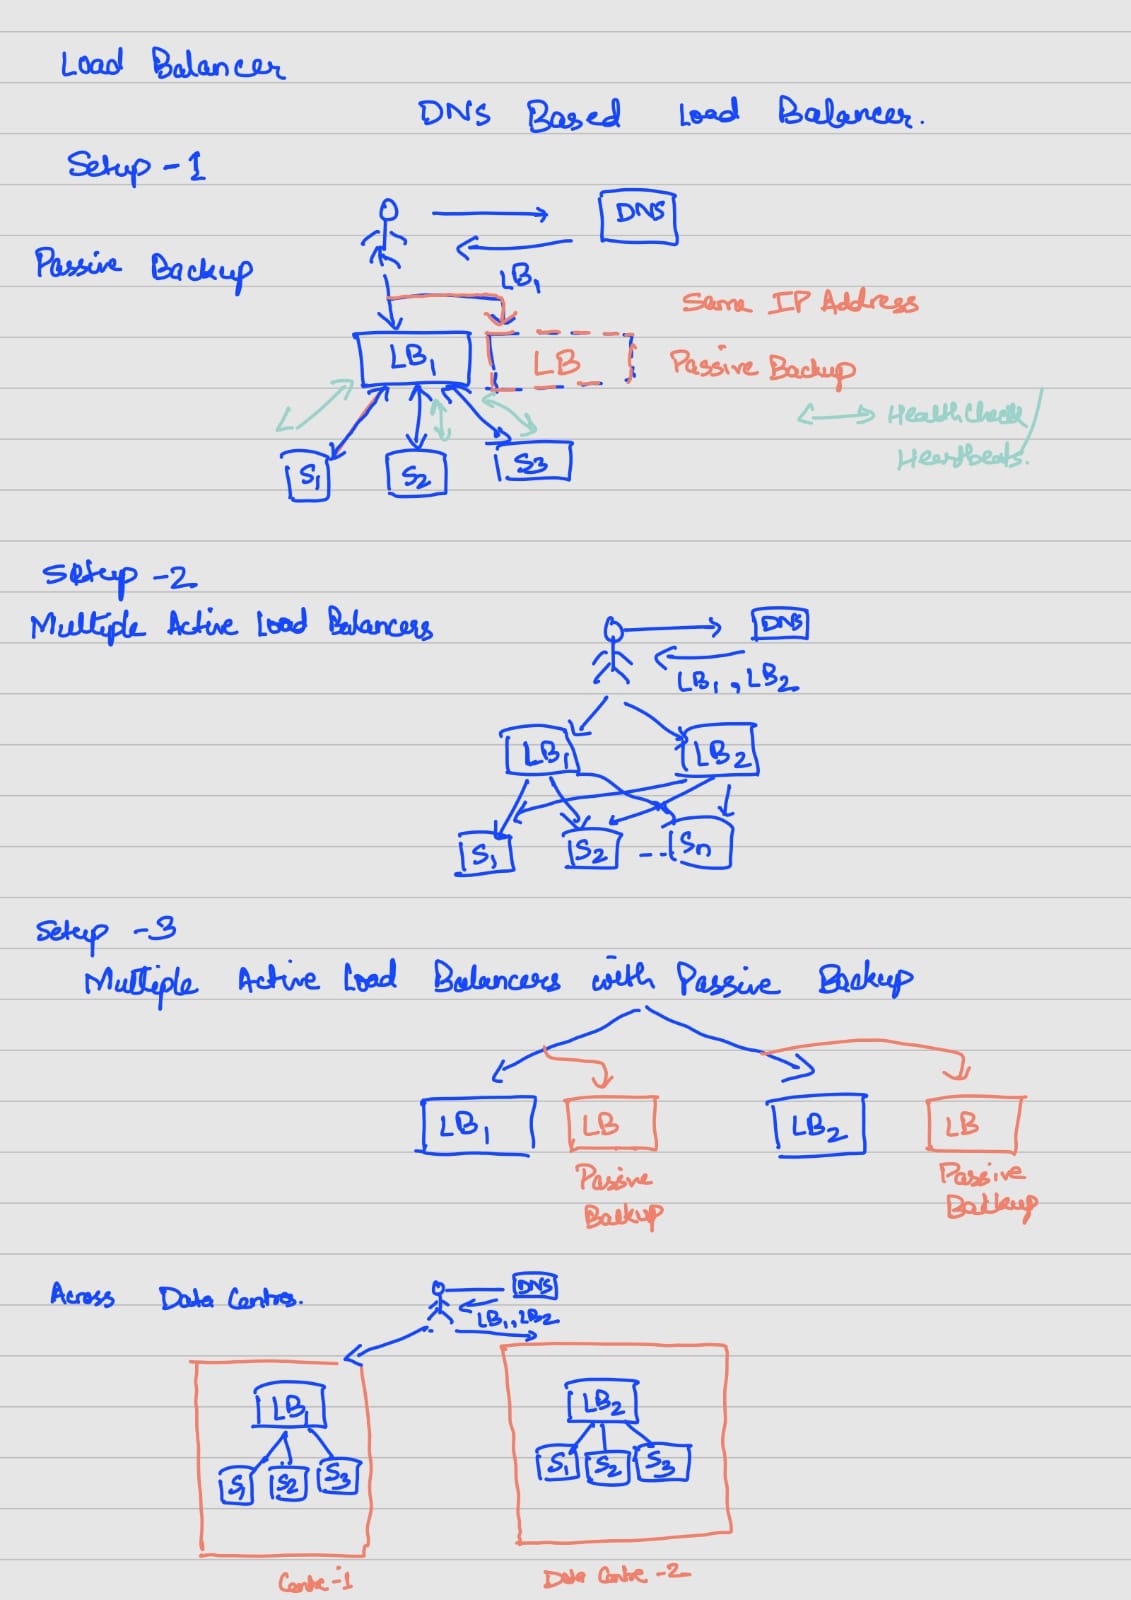 Load Balancer
DNS Based Load Balancer.
Setup -1
DNS
Passive Backup
LB1
Same IP Address
LB1
LB
Passive Backup
Health Check/
Heartbeats.
S1
S2
S3
Setup -2
Multiple Active Load Balancers
DNS
LB1, LB2
LB1
LB2
S1
S2
--
Sn
Setup -3
Multiple Active Load Balancers with Passive Backup
LB1
LB
LB2
LB
Passive
Backup
Passive
Backup
Across Data Centres.
DNS
LB1, LB2
LB1
LB2
S1
S2
S3
S1
S2
S3
Centre -1
Data Centre -2